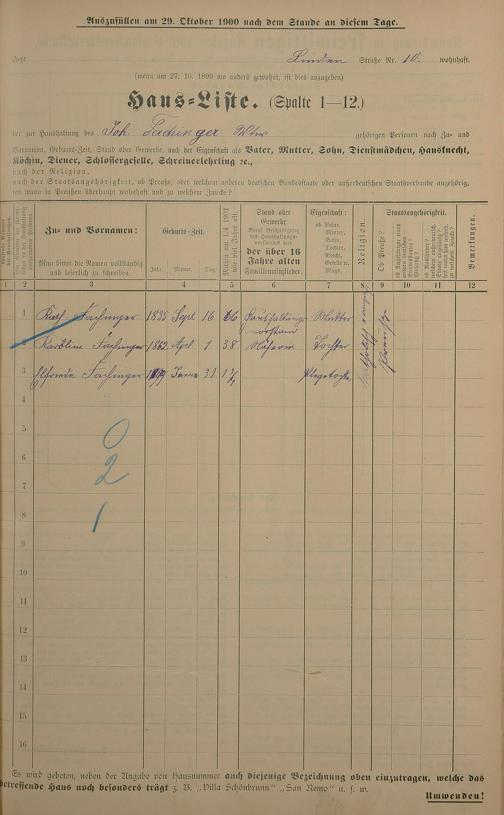 Auszufüllen am 29. Oktober 1900 nach dem Stande an diesem Tage.
Jetzt Linden Straße Nr. 10. wohnhaft.
(wenn am 27. 10. 1899 wo anders gewohnt, ist dies anzugeben)
Haus-Liste. (Spalte 1—12.)
der zur Haushaltung des Joh. Fachinger Wtw gehörigen Personen nach Zu- und
Vornamen, Geburts-Zeit, Stand oder Gewerbe, auch der Eigenschaft als Vater, Mutter, Sohn, Dienstmädchen, Hausknecht,
Köchin, Diener, Schlossergeselle, Schreinerlehrling ec.,
nach der Religion,
nach der Staatsangehörigkeit, ob Preuße, oder welchem anderen deutschen Bundesstaate oder außerdeutschen Staatsverbande angehörig,
seit wann in Preußen überhaupt wohnhaft und zu welchem Zweck?
Zu- und Vornamen:
Man bittet die Namen vollständig und leserlich zu schreiben.
Geburts-Zeit.
Jahr. Monat. Tag.
Stand oder Gewerbe
der über 16 Jahre alten Familienmitglieder.
Eigenschaft:
ob Vater, Mutter, Sohn, Tochter, Knecht, Geselle u. Magd.
Religion.
Staatsangehörigkeit.
Ob Preuße?
Bemerkungen.
1 2 3 4 5 6 7 8 9 10 11 12
1 Kath. Fachinger 1835 Sept 16 66 Haushaltungsvorstand Mutter
2 Karoline Fachinger 1862 Apl 1 38 Näherin Tochter
3 Fachinger 31 Plegetochter
4
5
0
6
2
7
8
1
9
10
11
12
13
14
15
16
Es wird gebeten, neben der Angabe von Hausnummer auch diejenige Bezeichnung oben einzutragen, welche das
betreffende Haus noch besonders trägt z. B. „Villa Schönbrunn" „San Remo" u. s. w.
Umwenden!